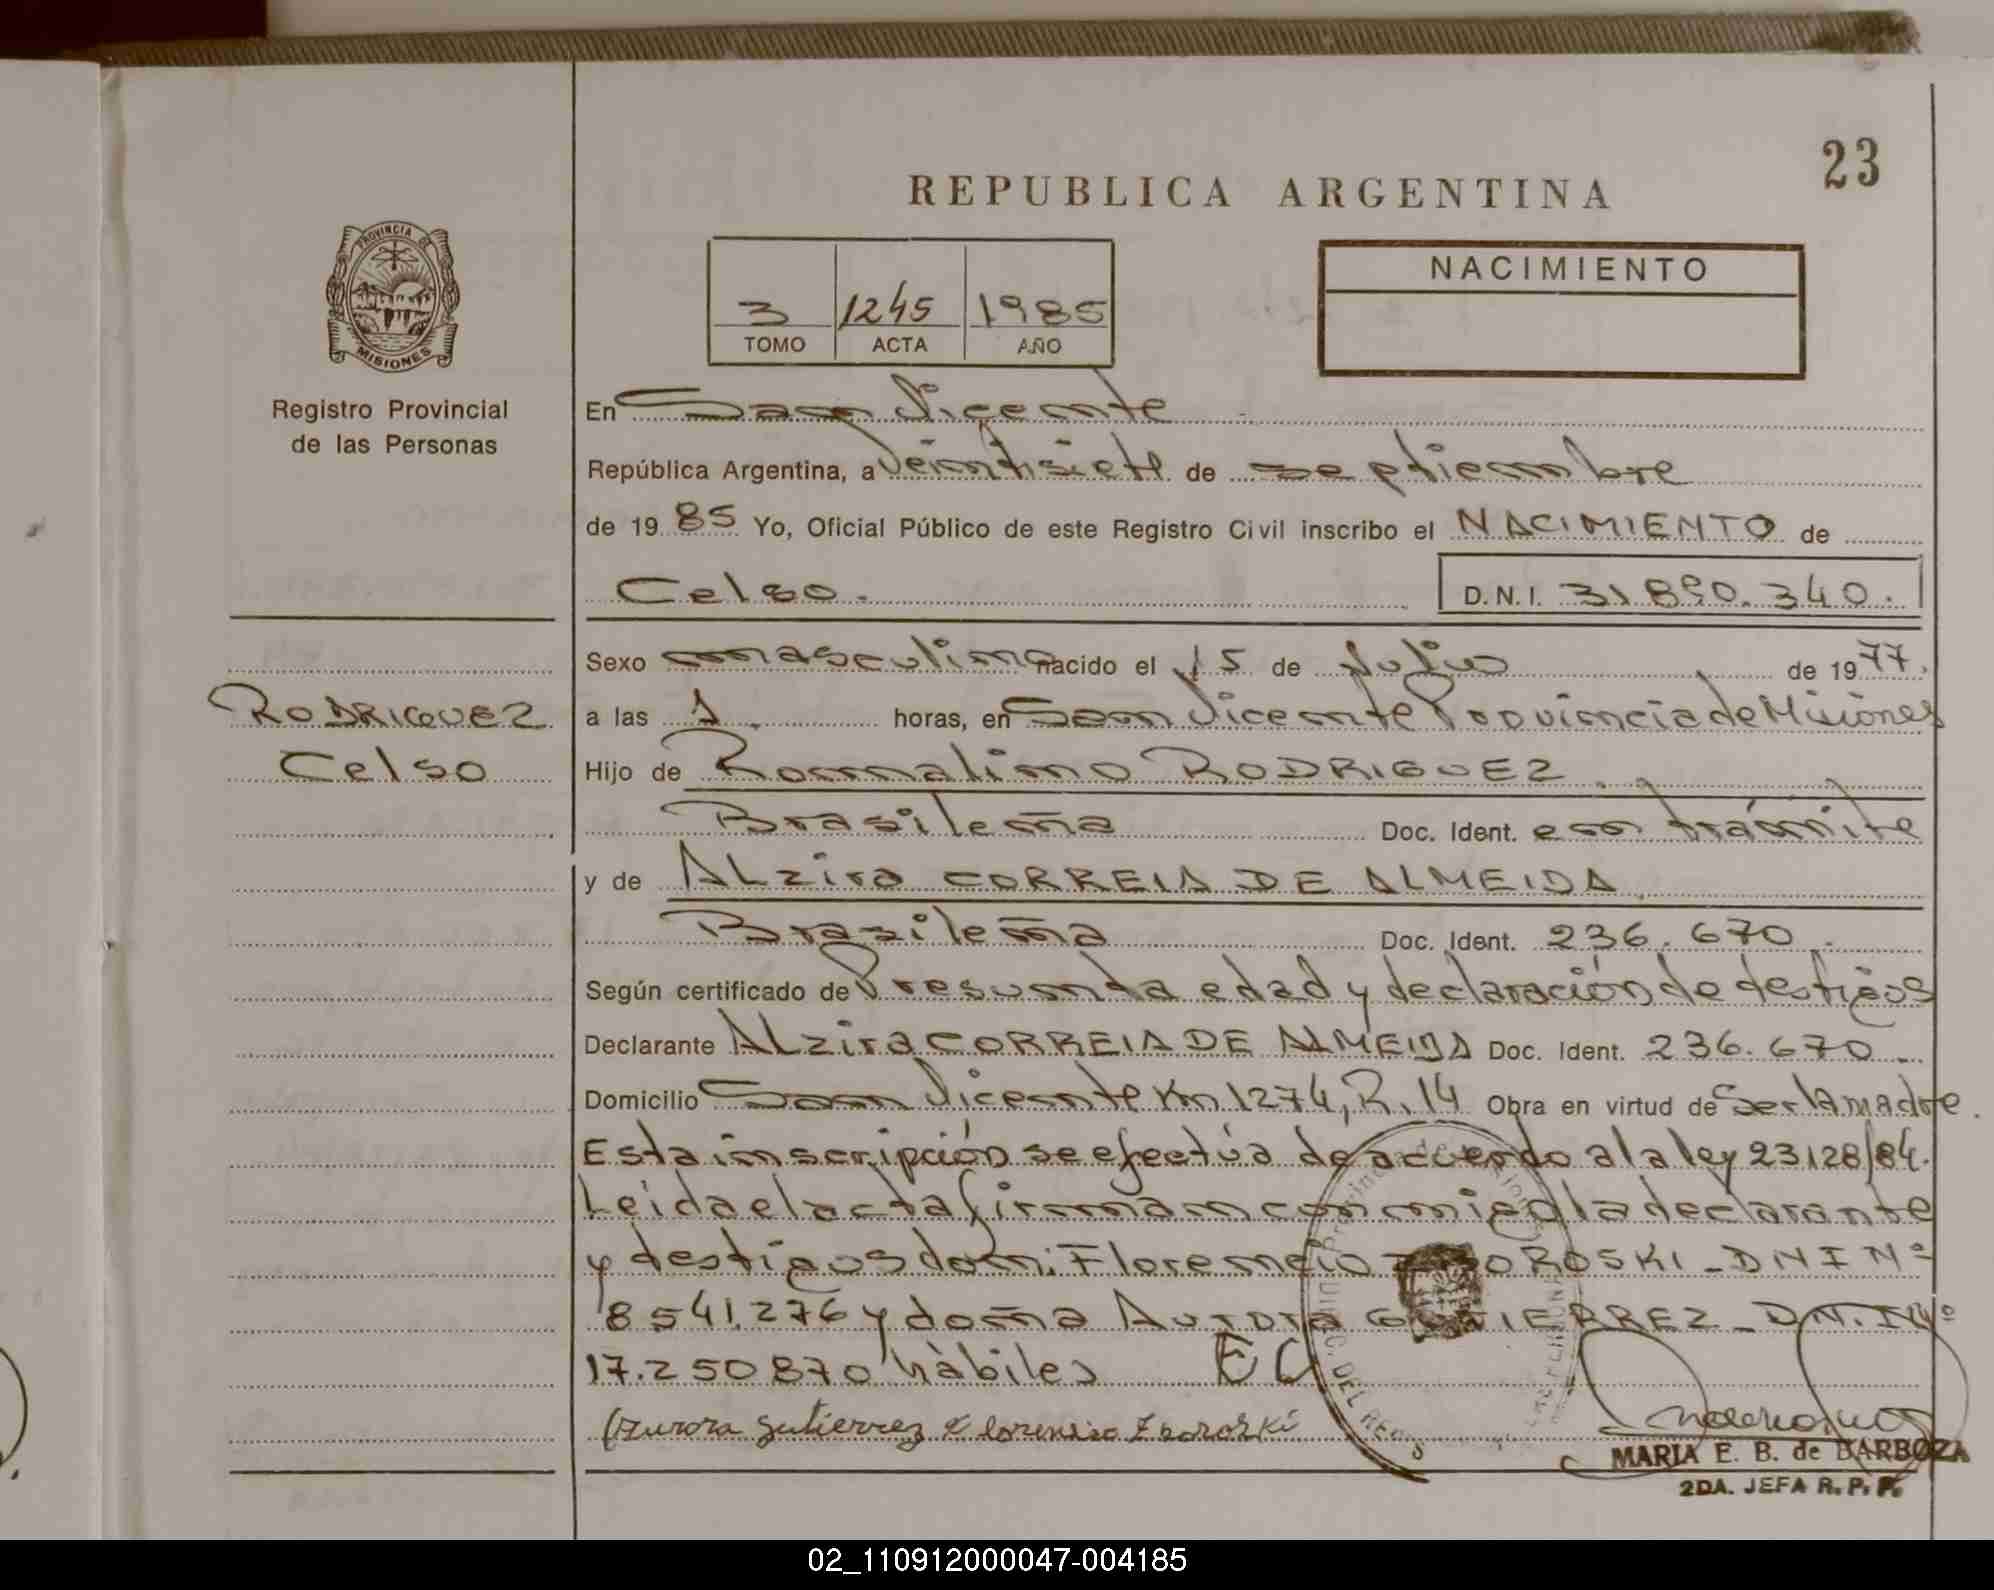 23
REPUBLICA ARGENTINA
PROVINCIA DE
MISIONES
Registro Provincial
de las Personas
3 1245 1985
TOMO ACTA AÑO
NACIMIENTO
En San Vicente
República Argentina, a veintisiete de septiembre
de 19 85 Yo, Oficial Público de este Registro Civil inscribo el NACIMIENTO de
Celso. D.N.I. 31.890.340.
Sexo masculino nacido el 15 de Julio de 19 77.
RODRIGUEZ
Celso
a las 1. horas, en San Vicente Provincia de Misiones
Hijo de Romalino RODRIGUEZ.
Brasileña Doc. Ident. en trámite
y de ALzira CORREIA DE ALMEIDA
Brazileña Doc. Ident. 236.670.
Según certificado de Presunta edad y declaración de testigos
Declarante ALzira CORREIA DE ALMEIDA Doc. Ident. 236.670.
Domicilio San Vicente Km 1274, R. 14 Obra en virtud de Ser la madre.
Esta inscripción se efectúa de acuerdo a la ley 23128/84.
Leida el acta firman conmigo la declarante
y testigos don: Florencio ZBOROSKI - DNI Nº
8541.276 y doña Aurora GUTIERREZ - DN.I Nº
17.250870 hàbiles
Aurora Gutierrez Florencio Zboroski
MARIA E. B. de BARBOZA
2DA. JEFA R. P. P.
02_110912000047-004185